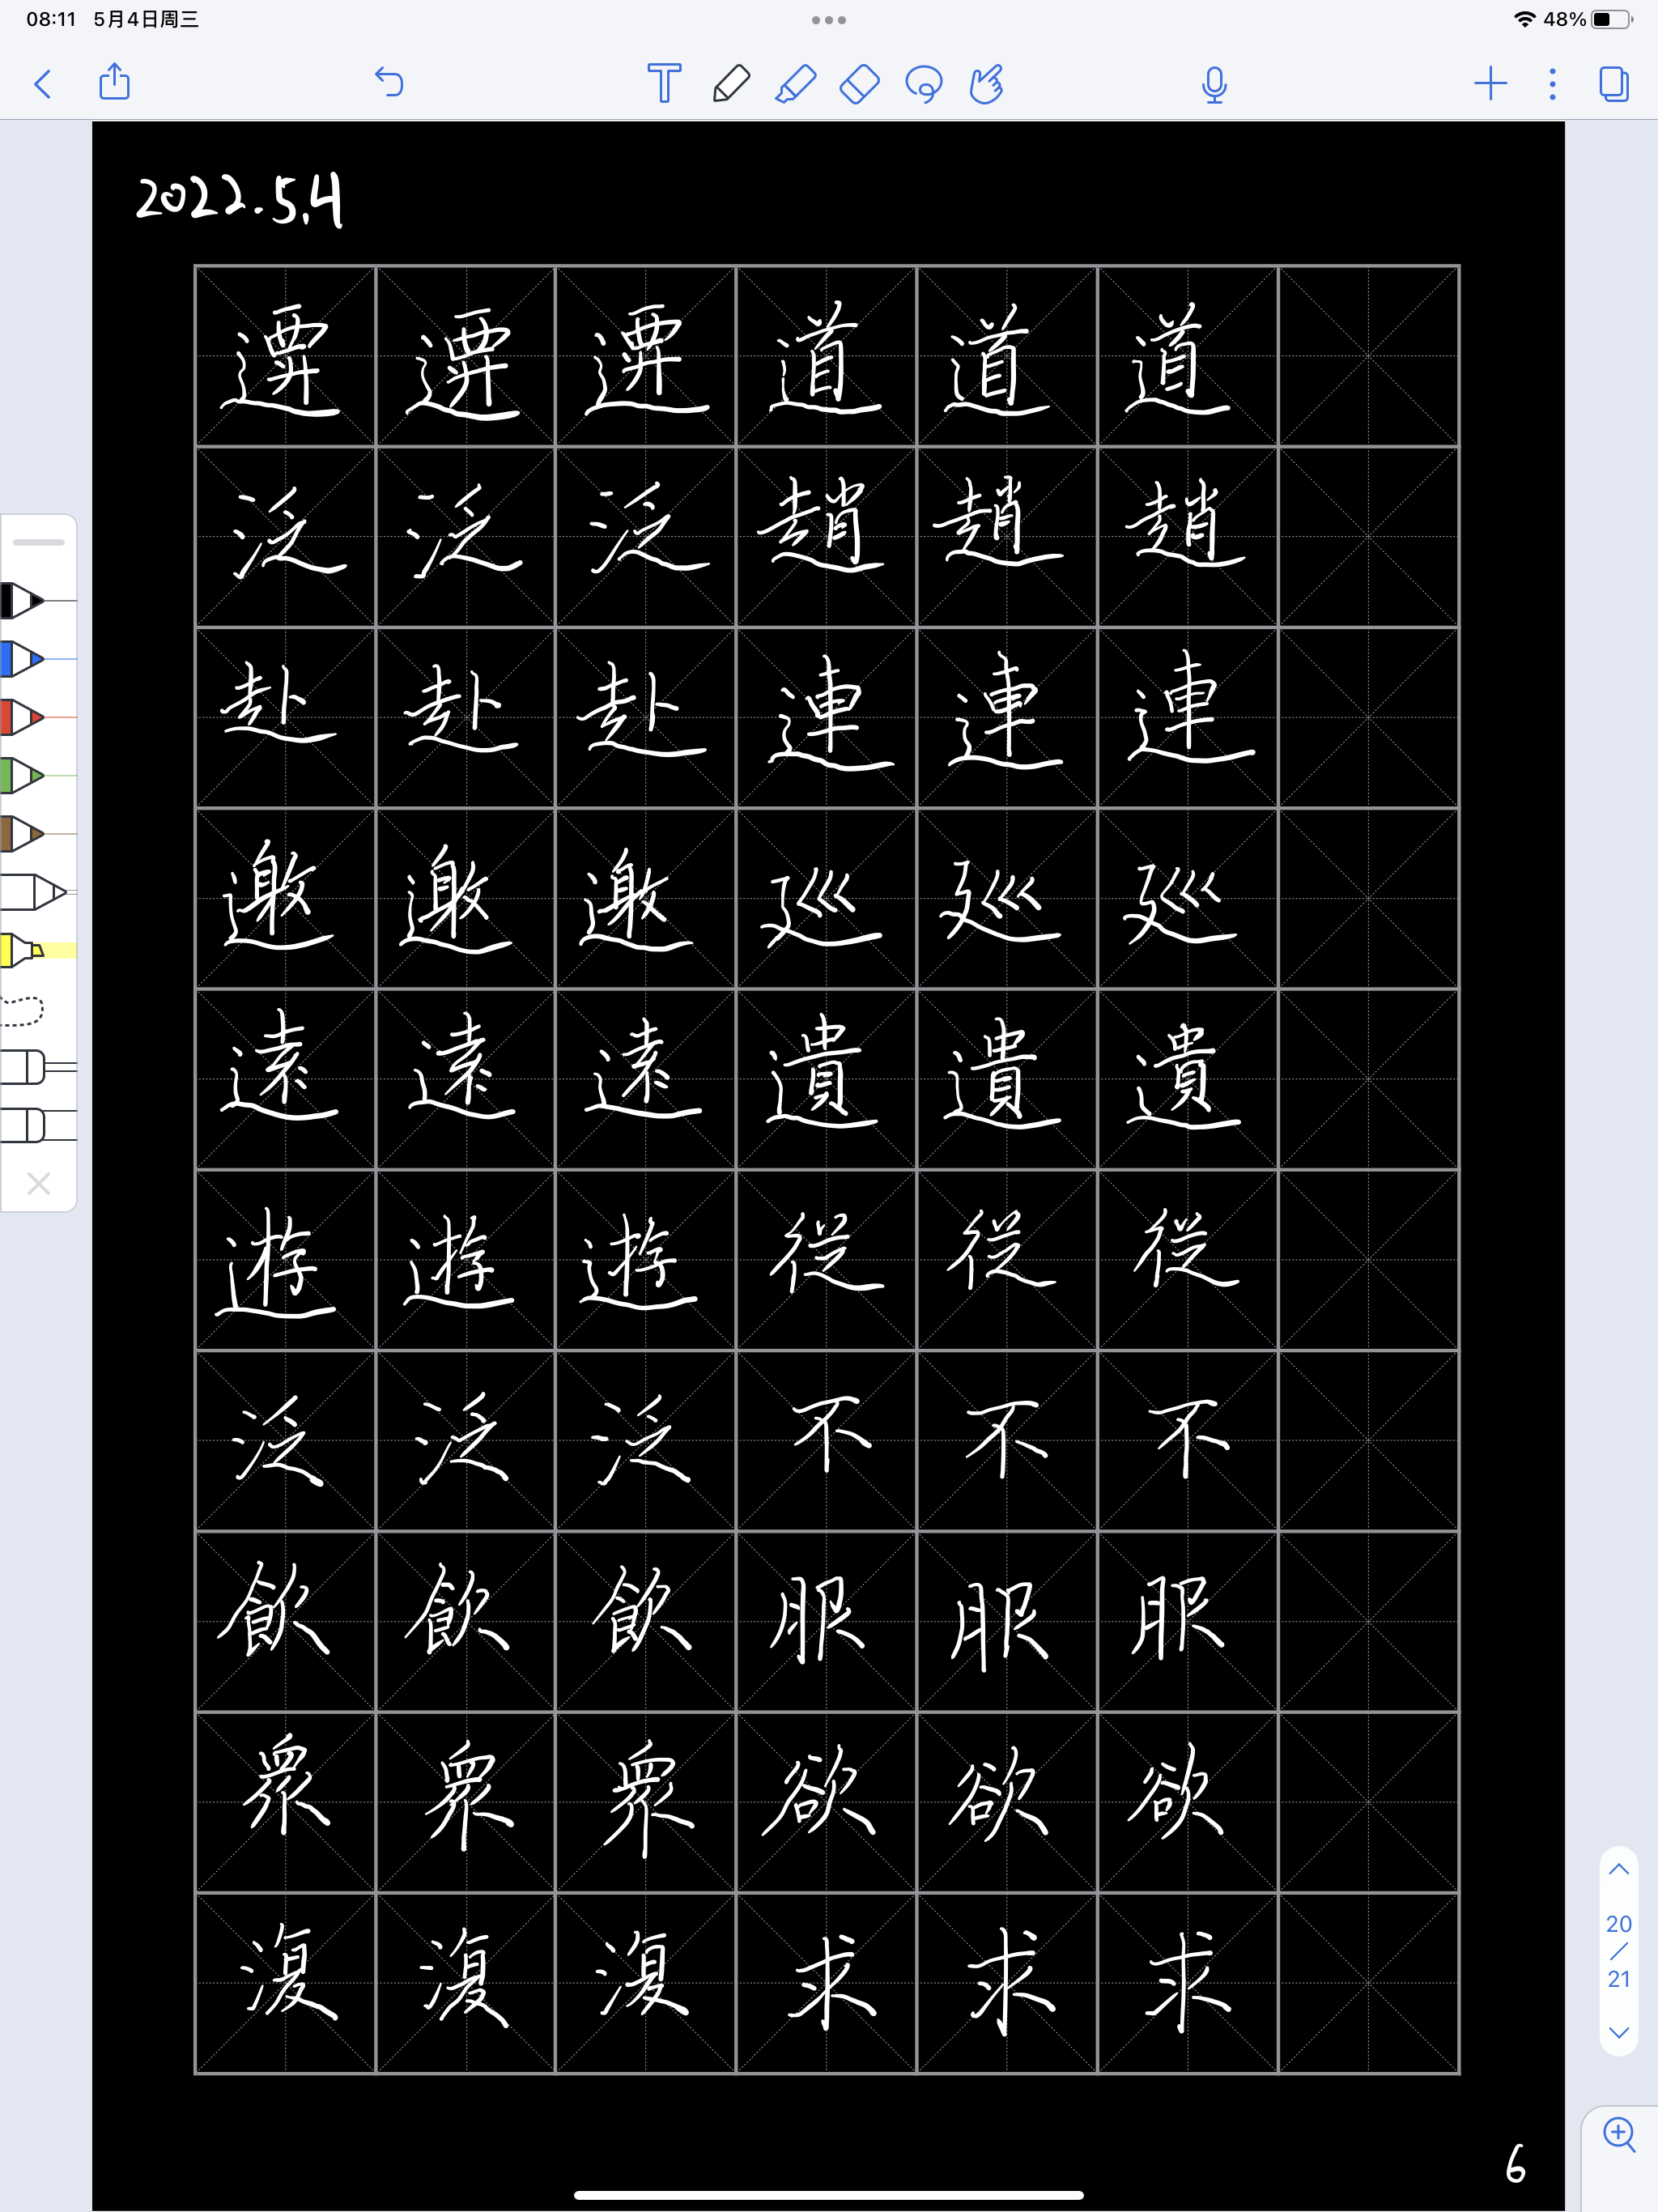 08:11 5月4日周三 48%
2022.5.4
遷 遷 遷 道 道 道
泛 泛 泛 趙 趙 趙
赴 赴 赴 連 連 連
邀 邀 邀 廵 廵 廵
遠 遠 遠 遺 遺 遺
遊 遊 遊 從 從 從
泛 泛 泛 不 不 不
飲 飲 飲 服 服 服
眾 眾 眾 欲 欲 欲
求 求 求
20
/
21
6